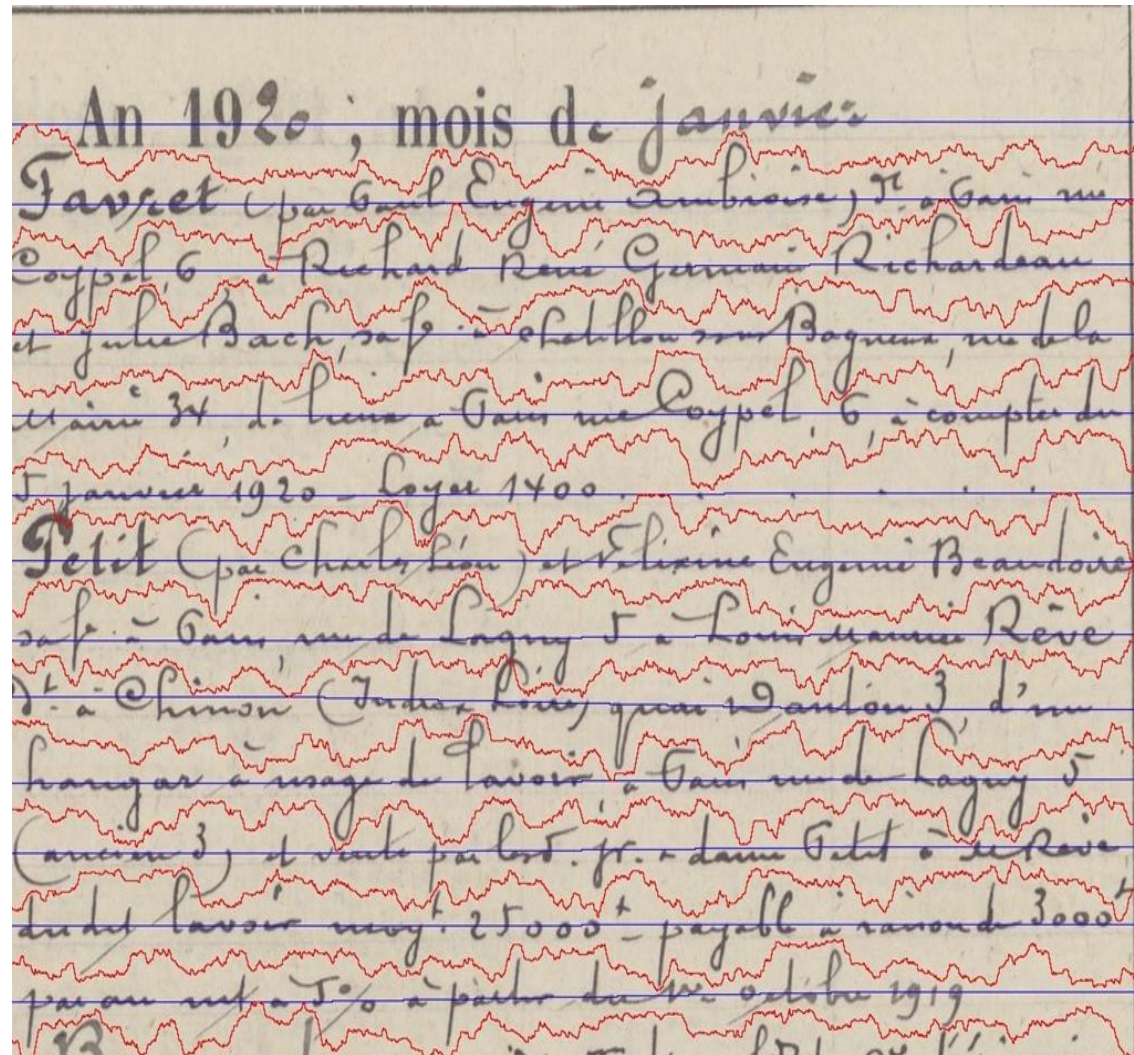 An 1920 ; mois de janvier
Favret (par Paul Eugène Ambroise) Dt. à Paris rue
Coypel, 6 à Richard René Germain Richardeau
et Julie Bach, sa fe. à Chatillon sous Bagneux, rue de la
Mairie 34, de lieux à Paris rue Coypel, 6, à compter du
5 janvier 1920 - Loyer 1400 . . . . .
Petit (par Charles Léon) et Félixine Eugénie Beaudoire
sa fe. à Paris, rue de Lagny 5 à Louis Maurice Rêve
Dt. à Chinon (Indre & Loire) quai Danton 3, d'un
hangar à usage de lavoir, à Paris rue de Lagny 5
(ancien 3) et vente par les d. pr. à dame Petit à M Rêve
dudit lavoir moyt. 25000f - payable à raison de 3000f
par an int à 5% à partir du 1er octobre 1919